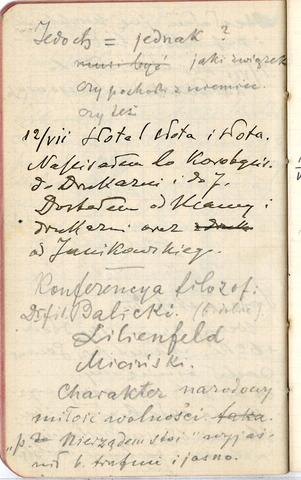 Jedoch = jednak ?
musi być jaki związek
czy pochodzi z niemiec.
czy też
12/VII słota! słota i słota.
Napisałem do
do Drukarni i do J.
Dostałem od Mamy i
drukarni oraz
od Janikowskiego.
Konferencya filozof:
Dr. fil. Balicki.
Lilienfeld
Miciński.
Charakter narodowy
miłość wolności
"Nierządem stoi" wyjaś-
nił b. trafnie i jasno.